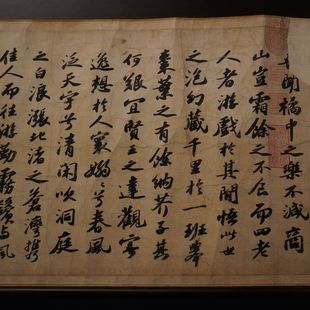 聞橘中之樂不減商
山豈霜餘之不食而四老
人者游戲於其間悟此世
之泡幻藏千里於一班舉
棗葉之有餘納芥子其
何艱宜賢王之達觀寄
逸想於人寰嫋〻兮春風
泛天宇兮清閑吹洞庭
之白浪漲北渚之蒼灣攜
佳人而往游勤霧鬢與風